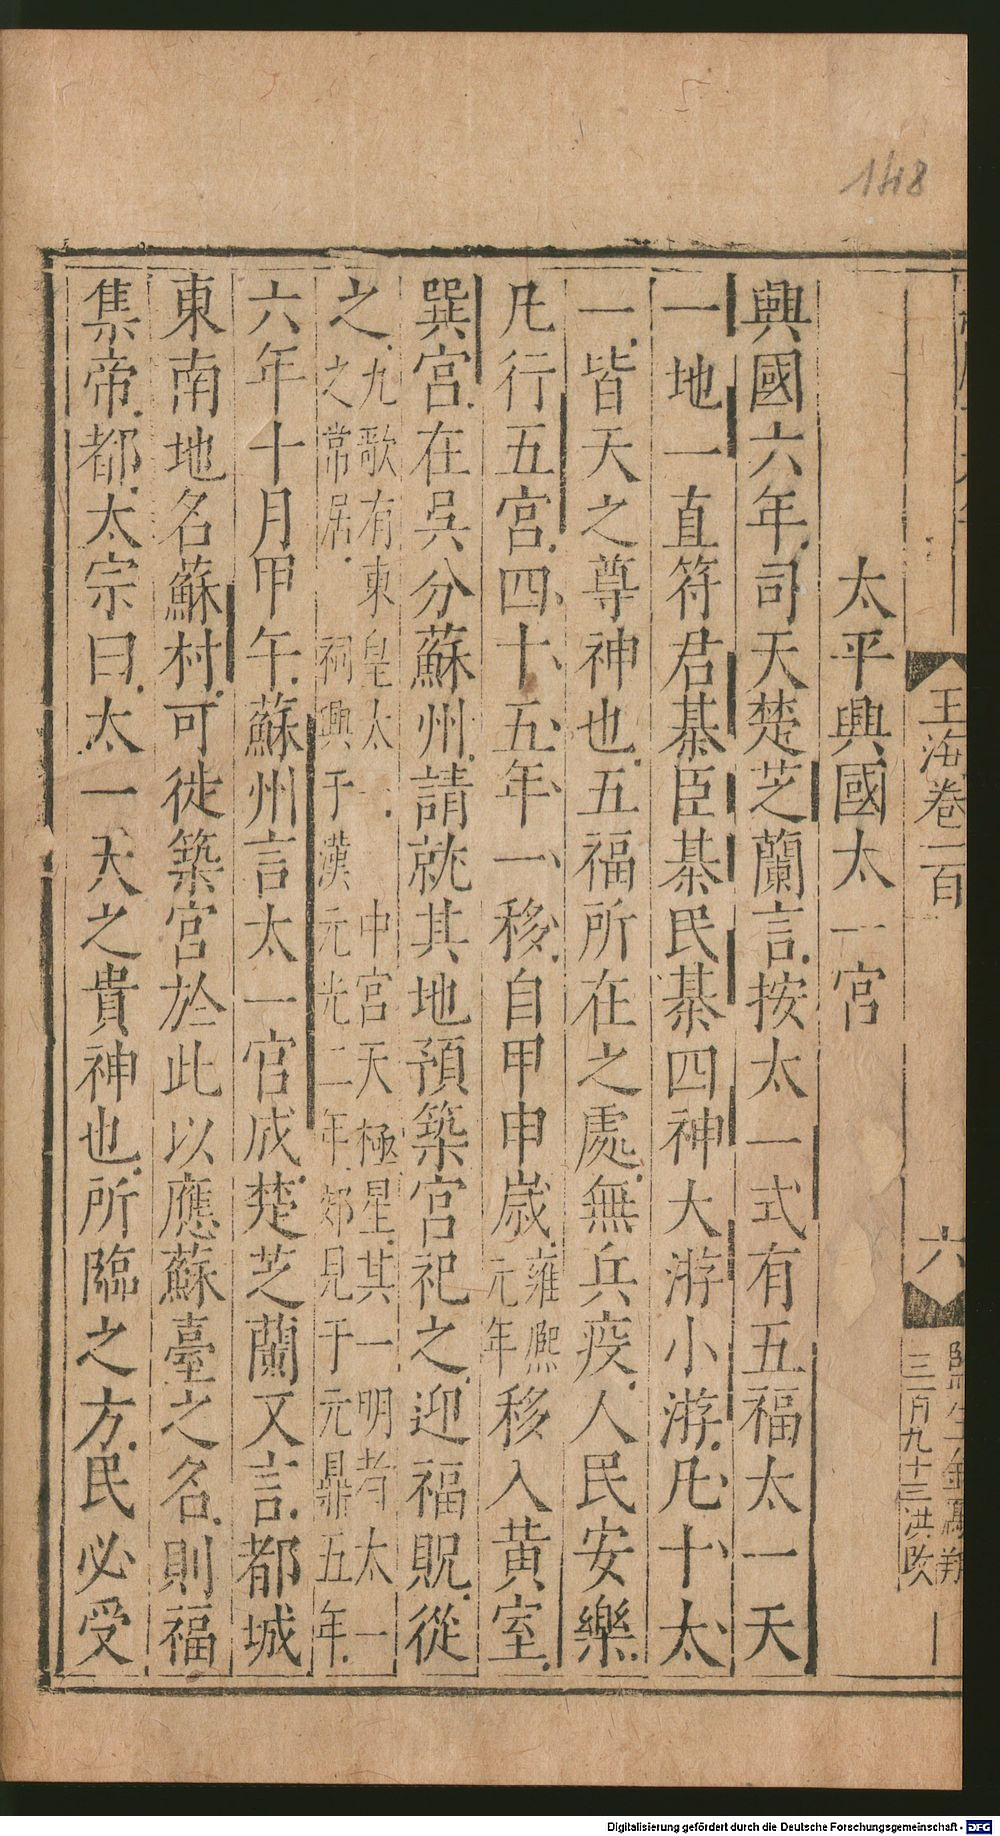 148
玉海卷一百
六
三月九十三洪改
太平興國太一宮
興國六年司天楚芝蘭言按太一式有五福太一天
一地一直符君綦臣綦民綦四神大游小游凡十太
一皆天之尊神也五福所在之處無兵疫人民安樂
凡行五宮四十五年一移自甲申歲雍熈元年移入黃室
巽宮在吳分蘇州請就其地預築宮祀之迎福貺從
之九歌有東皇太一中宮天極星其一明者太一之常居祠興于漢元光二年郊見于元鼎五年
六年十月甲午蘇州言太一官成楚芝蘭又言都城
東南地名蘇村可徙築宮於此以應蘇臺之名則福
集帝都太宗曰太一天之貴神也所臨之方民必受
Digitalisierung gefördert durch die Deutsche Forschungsgemeinschaft - DFG